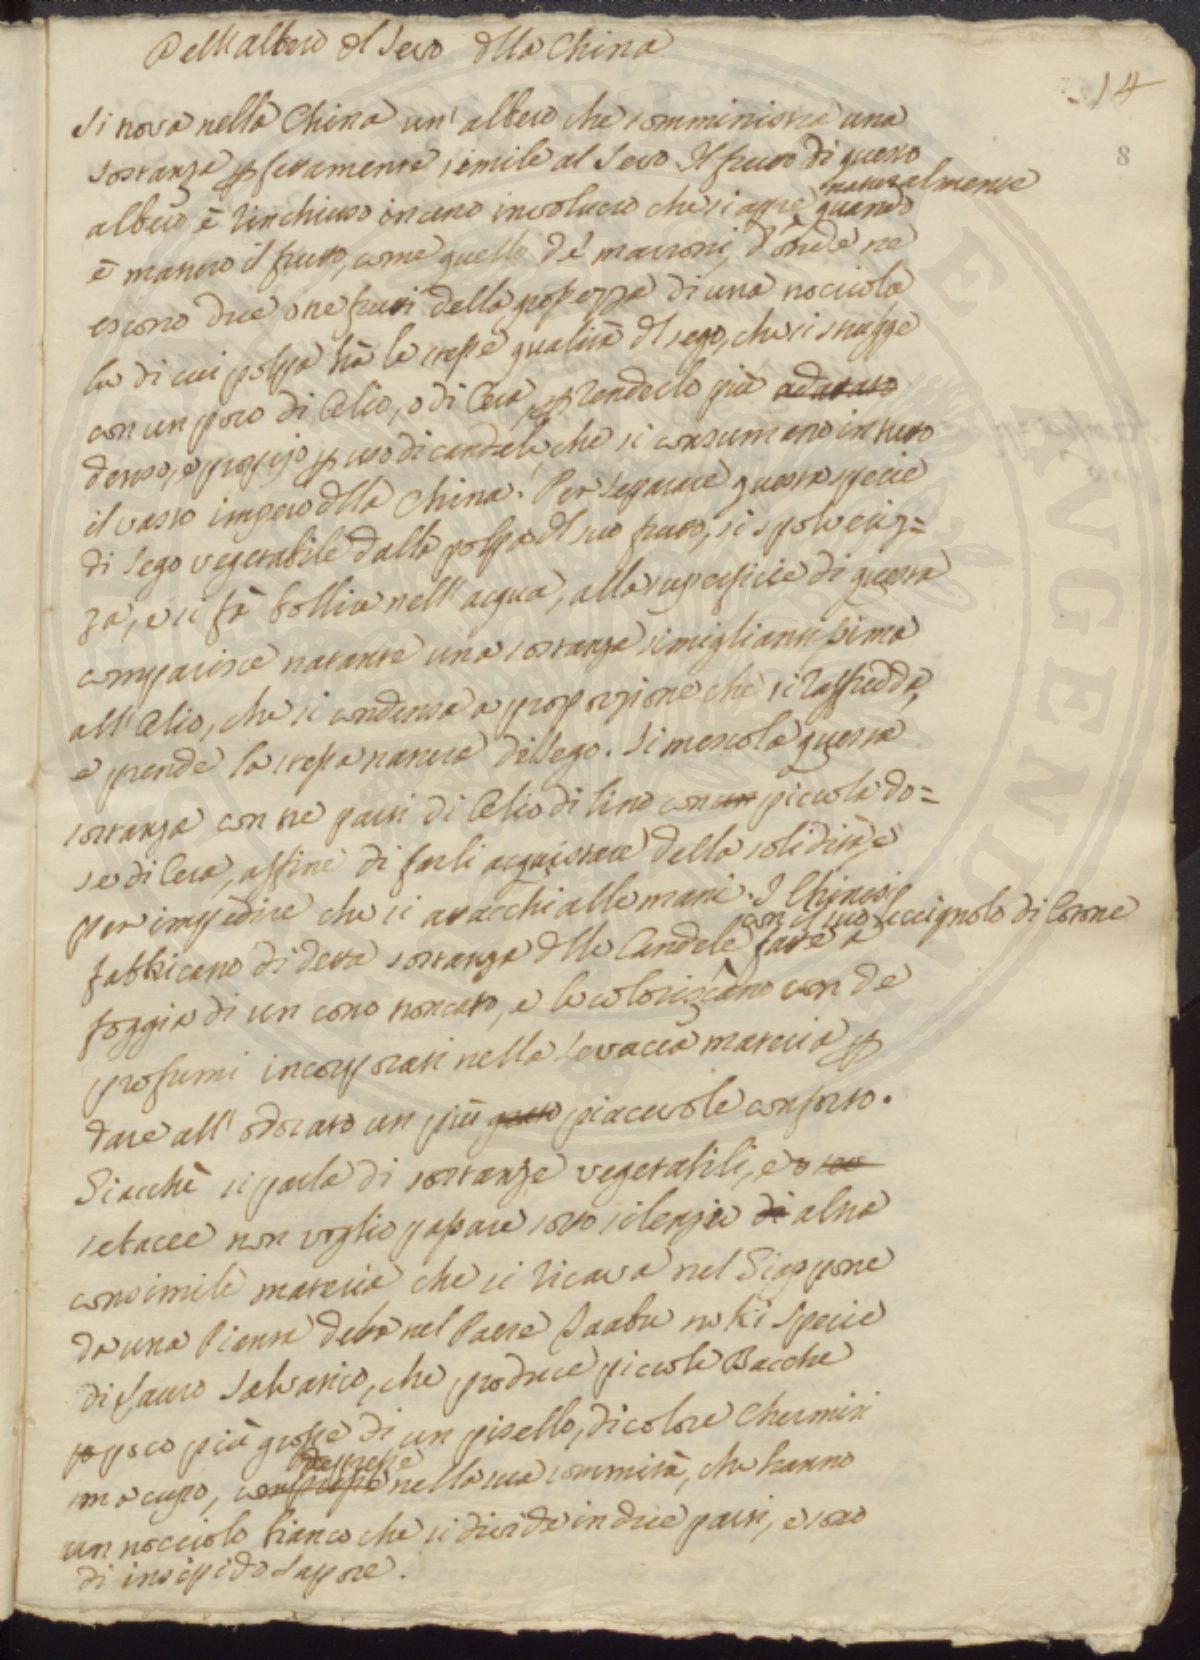 Dell'albero del Sevo della China
14
8
Si trova nella China un' albero che somministra una
sostanza perfettamente simile al Sevo. Il frutto di questo
albero è rinchiuso in uno involucro che si apre naturalmente quando
è maturo il frutto, come quello de' marroni, d'onde ne
escono due o tre frutti della grossezza di una nocciola
la di cui polpa hà le stesse qualità del sego, che si strugge
con un poco di Olio, o di Cera per renderlo più adattato
denso, e proprio per uso di candele, che si consumano in tutto
il vasto impero della China. Per separare questa specie
di Sego vegetabile dalla polpa del suo frutto, si spolveriz=
za, e si fà bollire nell' acqua, alla superficie di questa
comparisce natante una sostanza simigliantissima
all' Olio, che si condensa a proporzione che si raffredda,
e prende la stessa natura di Sego. Si mescola questa
sostanza con tre parti di Olio di lino con un piccola do=
se di Cera, affine di farli acquistare della solidità, e
per impedire che si attacchi alle mani. I Chinesi
fabbricano di detta sostanza delle Candele con il suo luccignolo di Cotone fatte a
foggia di un cono troncato, e le coloriscano con de
profumi incorporati nella Sevaccia materia per
dare all' odorato un più grato piacevole conforto.
Giacchè si parla di sostanze vegetabili, e o sev
sebacee non voglio passare sotto silenzio di altra
consimile materia che si ricava nel Giappone
da una Pianta detta nel Paese Jaabu no Ki specie
di Lauro Salvatico, che produce piccole Bacche
po poco più grosse di un pisello, di colore Chermisi
ma cupo, compresse depresse nella sua sommità, che hanno
un nocciolo bianco che si divide in due parti, e sono
di insipido Sapore.